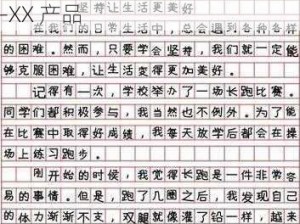 -XX 产品
坚持让生活更美好
在我们的日常生活中，总会遇到各种各样
的困难。然而，只要学会坚持，我们就一定能
够克服困难，让生活变得更加美好。
记得有一次，学校举办了一场长跑比赛。
同学们都积极参与，我当然也不例外。为了能
在比赛中取得好成绩，我每天放学后都会在操
场上练习跑步。
刚开始的时候，我觉得长跑是一件非常容
易的事情。但是，跑了几圈之后，我发现自己
的体力渐渐不支，双腿就像灌了铅一样，越